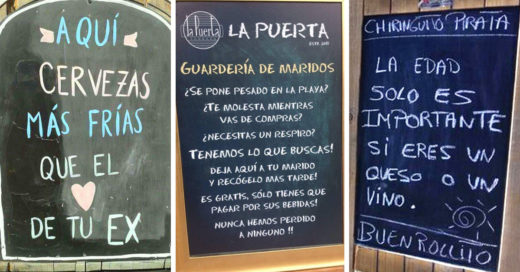 AQUÍ
CERVEZAS
MÁS FRÍAS
QUE EL
DE TU EX
la Puerta
LA PUERTA
GUARDERÍA DE MARIDOS
¿SE PONE PESADO EN LA PLAYA?
¿TE MOLESTA MIENTRAS
VAS DE COMPRAS?
¿NECESITAS UN RESPIRO?
TENEMOS LO QUE BUSCAS!
DEJA AQUÍ A TU MARIDO
Y RECÓGELO MAS TARDE!
ES GRATIS, SÓLO TIENES QUE
PAGAR POR SUS BEBIDAS!
NUNCA HEMOS PERDIDO
A NINGUNO !!
CHIRINGUITO PIRATA
LA EDAD
SOLO ES
IMPORTANTE
SI ERES UN
QUESO O UN
VINO.
BUEN ROLLITO